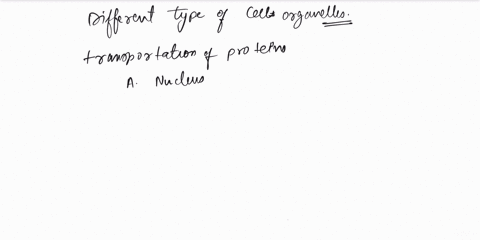 Different type of Cells organelles.
transportation of proteins
A. Nucleus